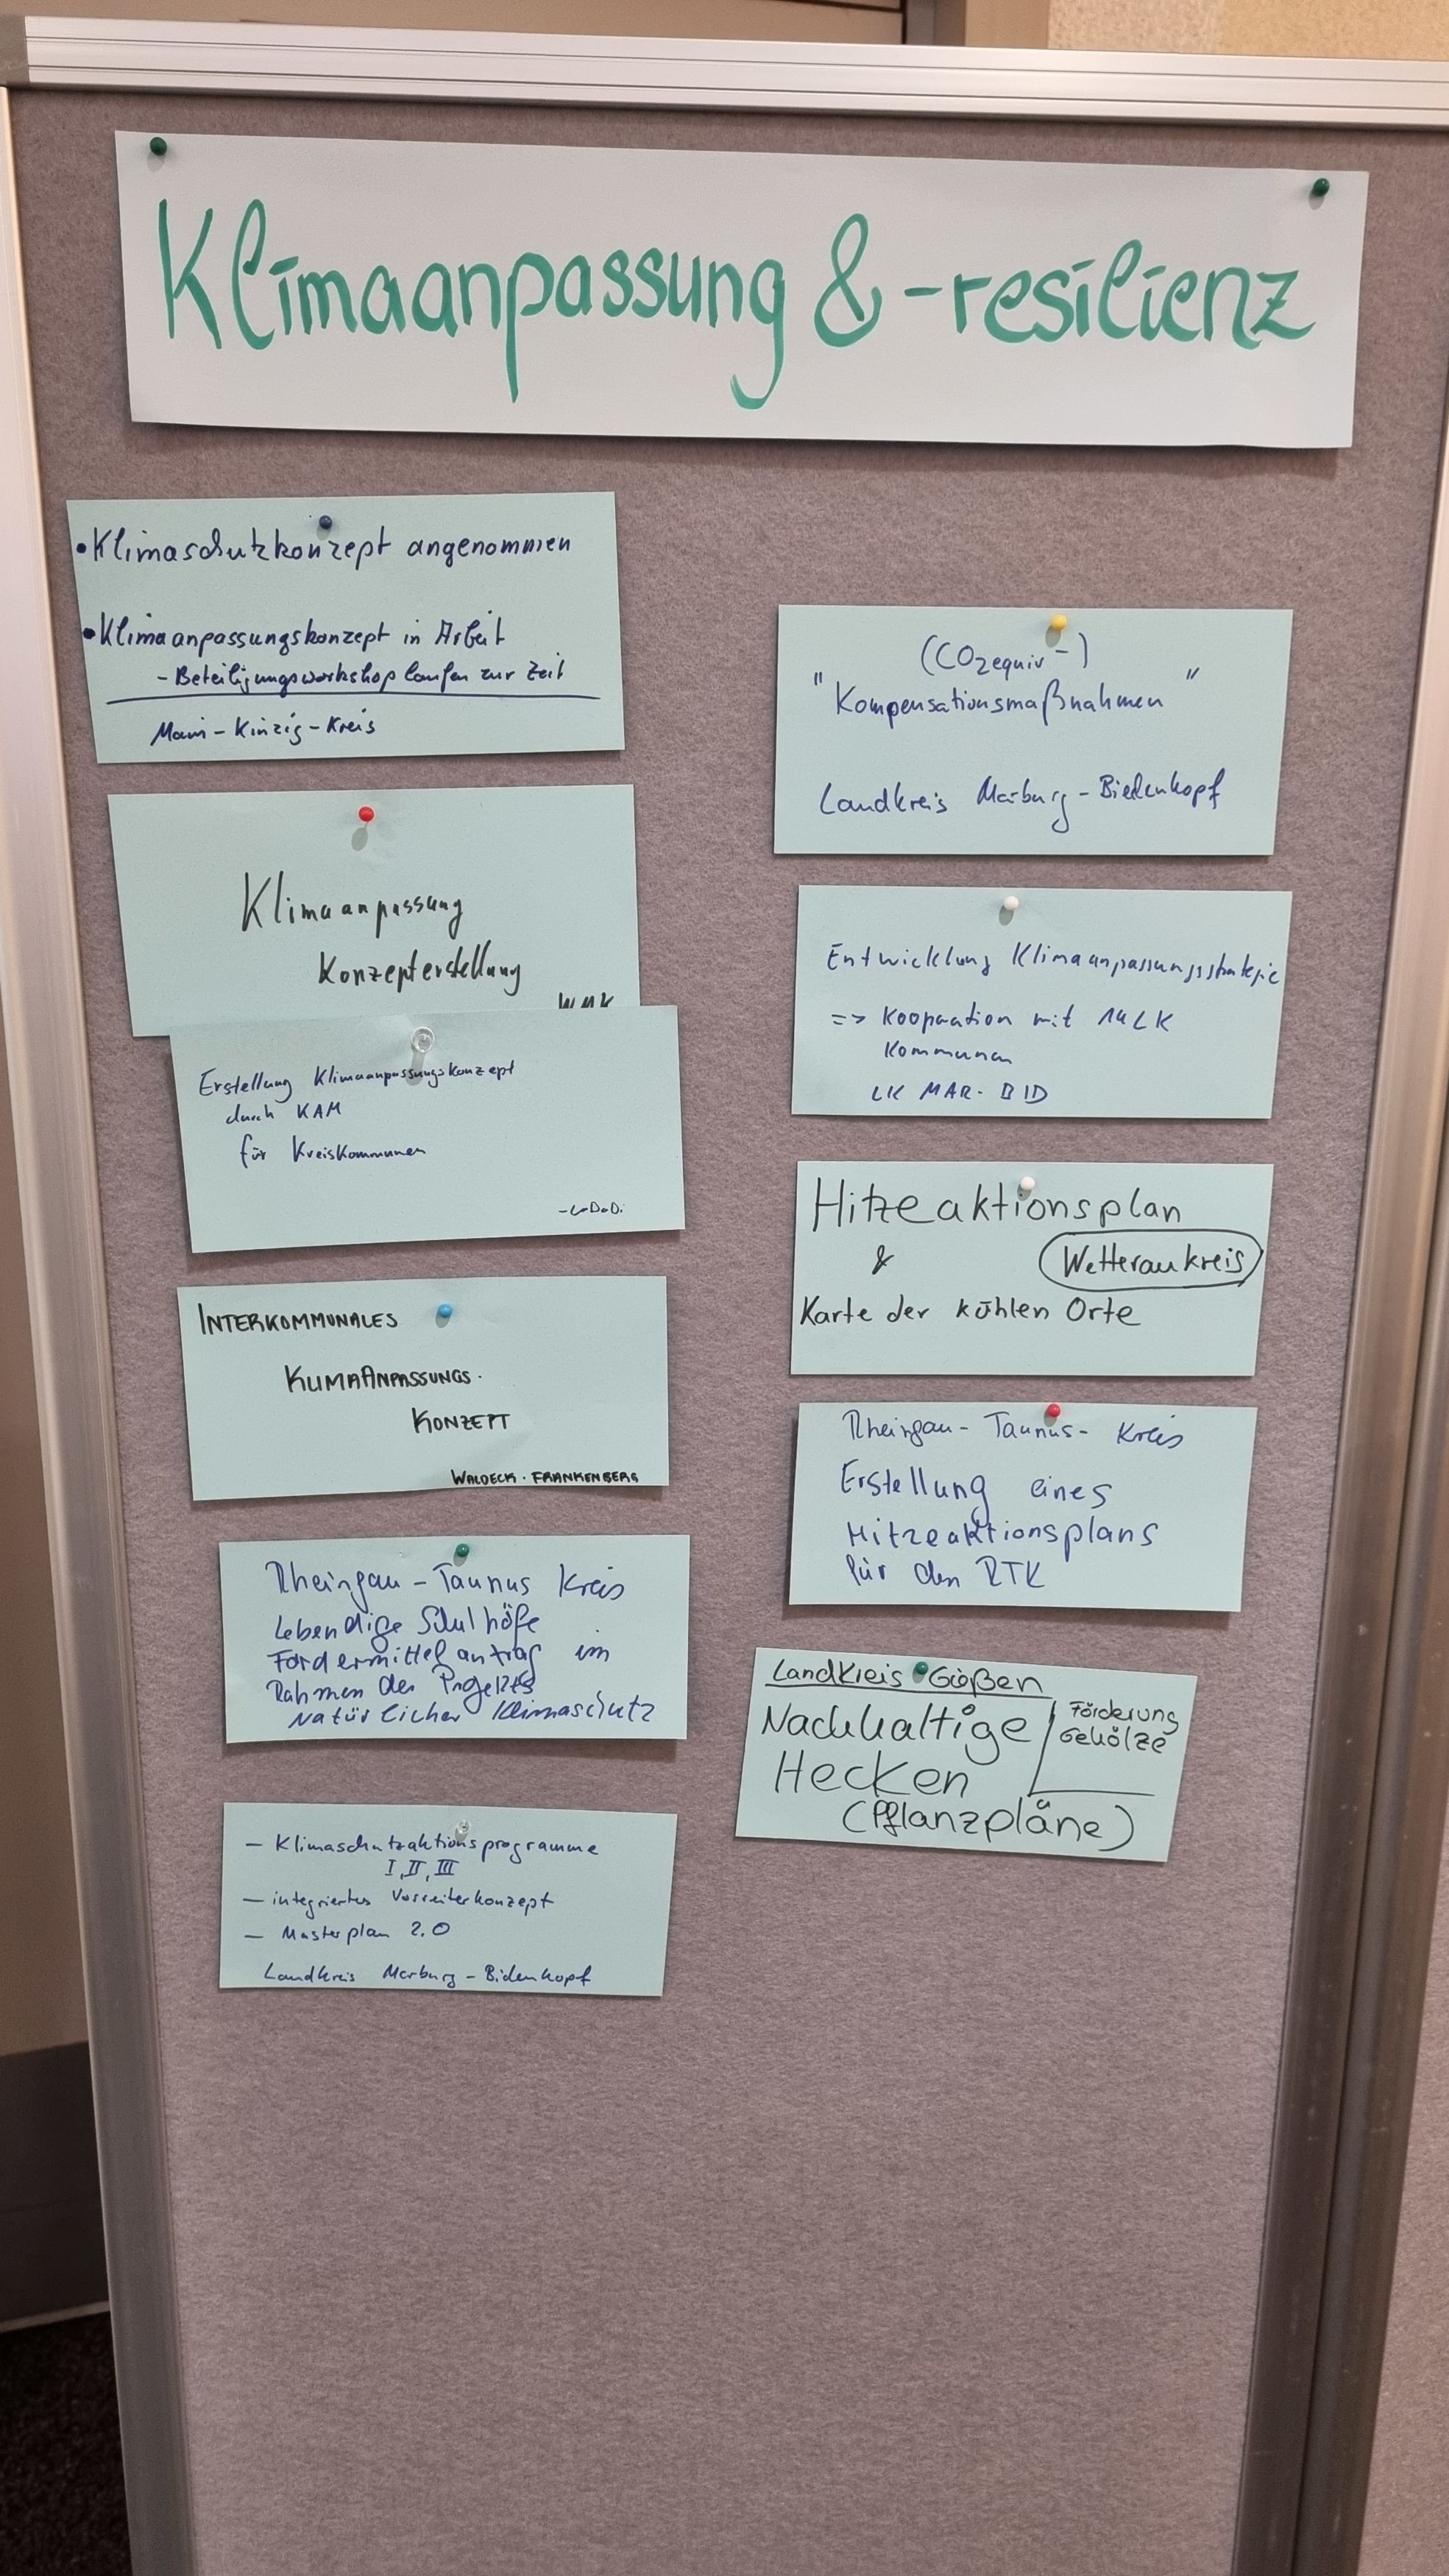 Klimaanpassung & -resilienz
• Klimaschutzkonzept angenommen
• Klimaanpassungskonzept in Arbeit
- Beteiligungsworkshop laufen zur Zeit
Main-Kinzig-Kreis
Klimaanpassung
Konzepterstellung
Erstellung Klimaanpassungskonzept
durch KAM
für Kreiskommunen
- LaDaDi
INTERKOMMUNALES
KLIMAANPASSUNGS-
KONZEPT
WALDECK-FRANKENBERG
Rheingau-Taunus Kreis
Lebendige Schulhöfe
Fördermittelantrag im
Rahmen des Projekts
Natürlicher Klimaschutz
- Klimaschutzaktionsprogramme
I, II, III
- integriertes Vorreiterkonzept
- Masterplan 2.0
Landkreis Marburg-Bidenkopf
(CO2equiv-)
"Kompensationsmaßnahmen"
Landkreis Marburg-Biedenkopf
Entwicklung Klimaanpassungsstrategie
=> Kooperation mit 14 LK
Kommunen
LK MAR-BID
Hitzeaktionsplan
&
Wetteraukreis
Karte der kühlen Orte
Rheingau-Taunus-Kreis
Erstellung eines
Hitzeaktionsplans
für den RTK
Landkreis Gießen
Nachhaltige
Hecken
(Pflanzpläne)
Förderung
Gehölze